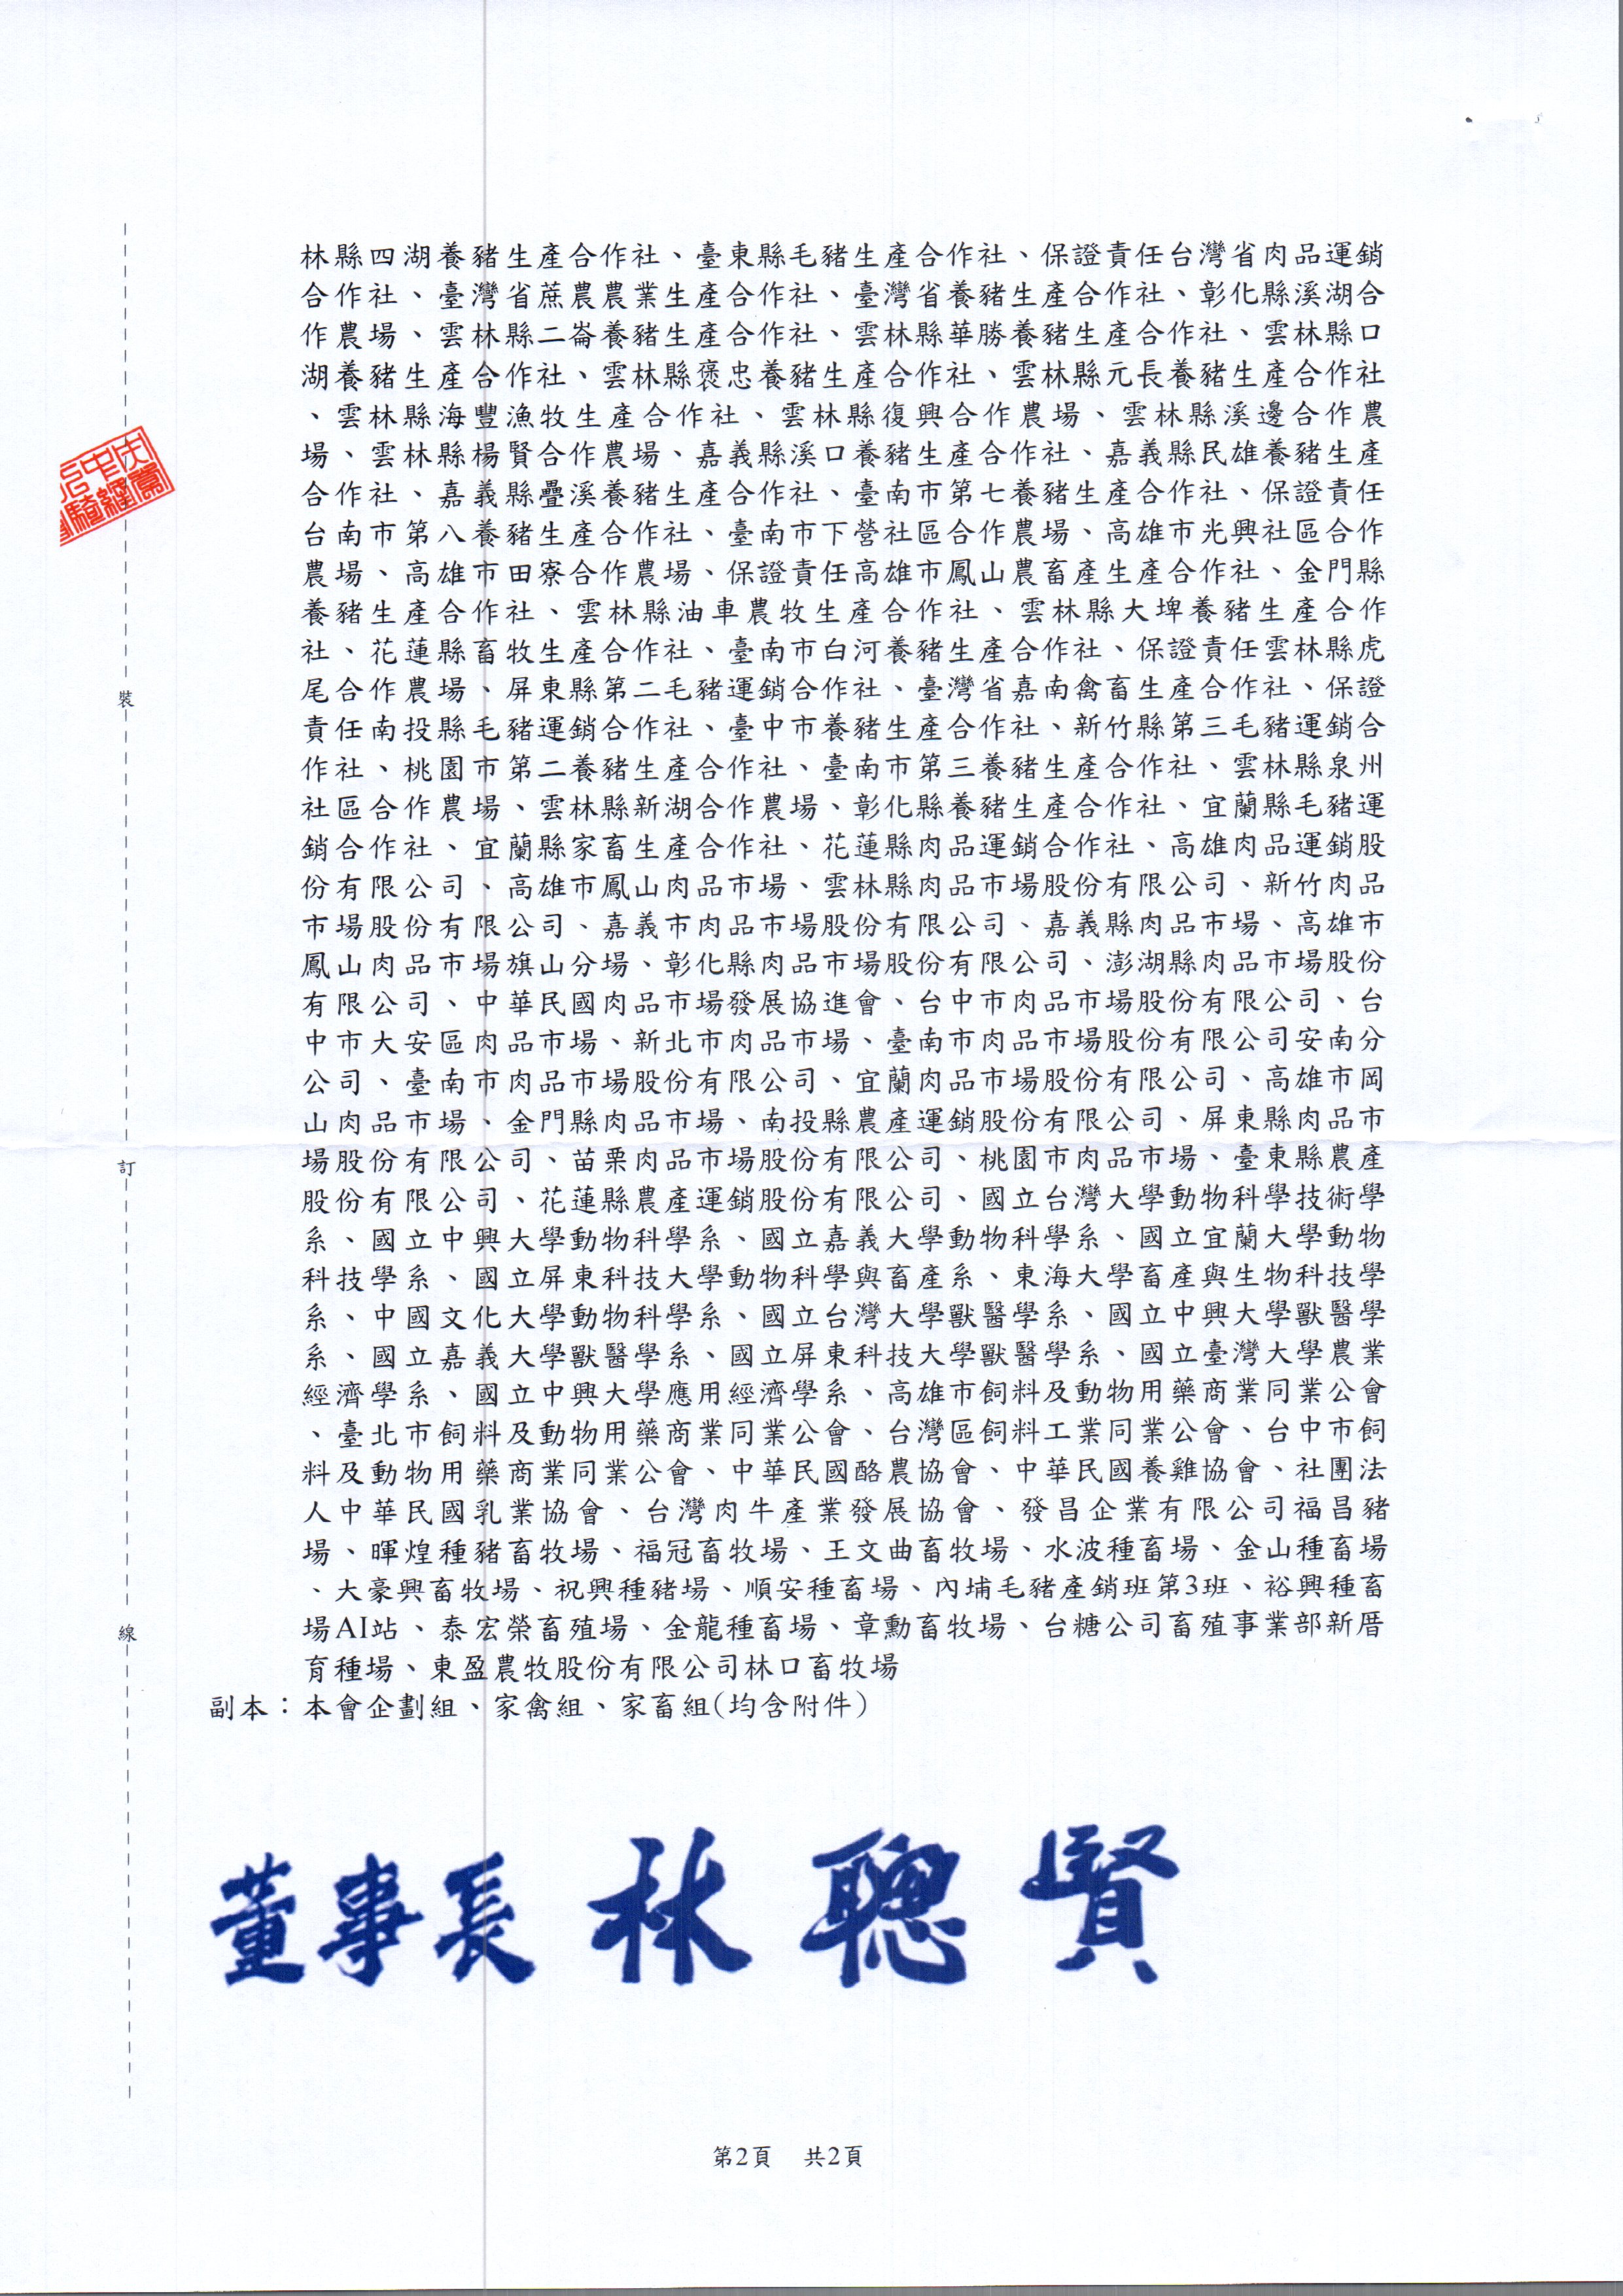 林縣四湖養豬生產合作社、臺東縣毛豬生產合作社、保證責任台灣省肉品運銷
合作社、臺灣省蔗農農業生產合作社、臺灣省養豬生產合作社、彰化縣溪湖合
作農場、雲林縣二崙養豬生產合作社、雲林縣華勝養豬生產合作社、雲林縣口
湖養豬生產合作社、雲林縣褒忠養豬生產合作社、雲林縣元長養豬生產合作社
、雲林縣海豐漁牧生產合作社、雲林縣復興合作農場、雲林縣溪邊合作農
場、雲林縣楊賢合作農場、嘉義縣溪口養豬生產合作社、嘉義縣民雄養豬生產
合作社、嘉義縣疊溪養豬生產合作社、臺南市第七養豬生產合作社、保證責任
台南市第八養豬生產合作社、臺南市下營社區合作農場、高雄市光興社區合作
農場、高雄市田寮合作農場、保證責任高雄市鳳山農畜產生產合作社、金門縣
養豬生產合作社、雲林縣油車農牧生產合作社、雲林縣大埤養豬生產合作
社、花蓮縣畜牧生產合作社、臺南市白河養豬生產合作社、保證責任雲林縣虎
尾合作農場、屏東縣第二毛豬運銷合作社、臺灣省嘉南禽畜生產合作社、保證
責任南投縣毛豬運銷合作社、臺中市養豬生產合作社、新竹縣第三毛豬運銷合
作社、桃園市第二養豬生產合作社、臺南市第三養豬生產合作社、雲林縣泉州
社區合作農場、雲林縣新湖合作農場、彰化縣養豬生產合作社、宜蘭縣毛豬運
銷合作社、宜蘭縣家畜生產合作社、花蓮縣肉品運銷合作社、高雄肉品運銷股
份有限公司、高雄市鳳山肉品市場、雲林縣肉品市場股份有限公司、新竹肉品
市場股份有限公司、嘉義市肉品市場股份有限公司、嘉義縣肉品市場、高雄市
鳳山肉品市場旗山分場、彰化縣肉品市場股份有限公司、澎湖縣肉品市場股份
有限公司、中華民國肉品市場發展協進會、台中市肉品市場股份有限公司、台
中市大安區肉品市場、新北市肉品市場、臺南市肉品市場股份有限公司安南分
公司、臺南市肉品市場股份有限公司、宜蘭肉品市場股份有限公司、高雄市岡
山肉品市場、金門縣肉品市場、南投縣農產運銷股份有限公司、屏東縣肉品市
場股份有限公司、苗栗肉品市場股份有限公司、桃園市肉品市場、臺東縣農產
股份有限公司、花蓮縣農產運銷股份有限公司、國立台灣大學動物科學技術學
系、國立中興大學動物科學系、國立嘉義大學動物科學系、國立宜蘭大學動物
科技學系、國立屏東科技大學動物科學與畜產系、東海大學畜產與生物科技學
系、中國文化大學動物科學系、國立台灣大學獸醫學系、國立中興大學獸醫學
系、國立嘉義大學獸醫學系、國立屏東科技大學獸醫學系、國立臺灣大學農業
經濟學系、國立中興大學應用經濟學系、高雄市飼料及動物用藥商業同業公會
、臺北市飼料及動物用藥商業同業公會、台灣區飼料工業同業公會、台中市飼
料及動物用藥商業同業公會、中華民國酪農協會、中華民國養雞協會、社團法
人中華民國乳業協會、台灣肉牛產業發展協會、發昌企業有限公司福昌豬
場、暉煌種豬畜牧場、福冠畜牧場、王文曲畜牧場、水波種畜場、金山種畜場
、大豪興畜牧場、祝興種豬場、順安種畜場、內埔毛豬產銷班第3班、裕興種畜
場AI站、泰宏榮畜殖場、金龍種畜場、章勳畜牧場、台糖公司畜殖事業部新厝
育種場、東盈農牧股份有限公司林口畜牧場
副本：本會企劃組、家禽組、家畜組(均含附件)
董事長 林聰賢
裝
訂
線
第2頁 共2頁